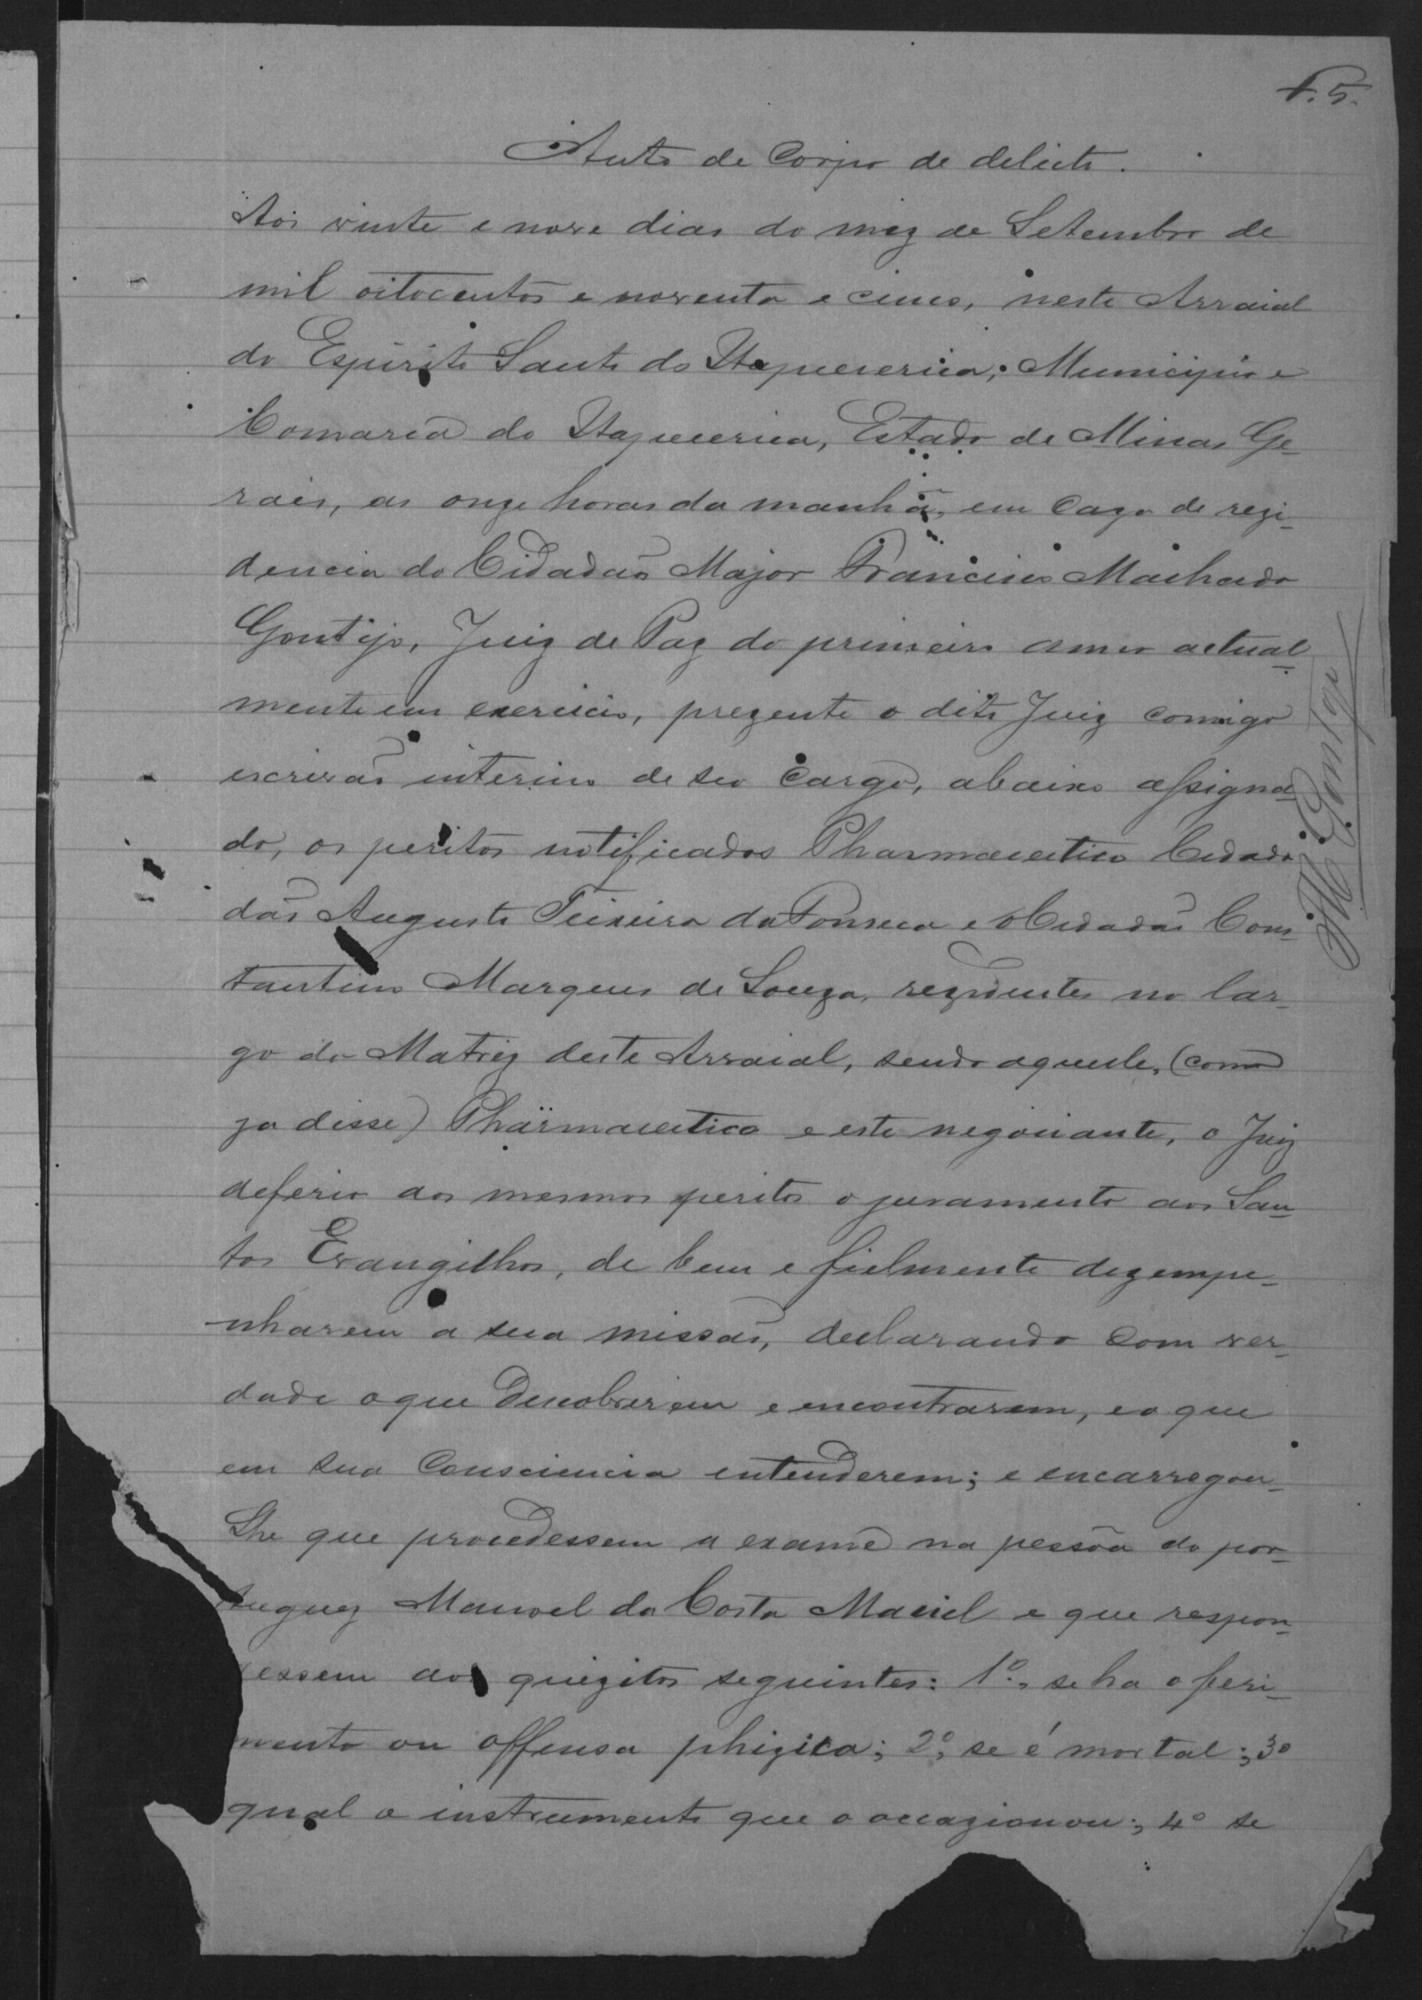 f. 5.
Auto de Corpo de delicto.
Aos vinte e nove dias do mez de Setembro de
mil oitocentos e noventa e cinco, neste Arraial
do Espirito Santo do Itapecerica; Municipio e
Comarca do Itapecerica, Estado de Minas Ge-
rais, as onze horas da manhã, em caza de rezi-
dencia do Cidadão Major Francisco Machado
Gontijo, Juiz de Paz do primeiro anno actual-
mente em exercicio, prezente o dito Juiz comigo
escrivão interino de seo cargo, abaixo assigna-
do, os peritos notificados Pharmaceutico Cidada
dão Augusto Teixeira da Fonseca e o Cidadão Cons-
tantino Marques de Souza, rezidentes no lar-
go da Matriz deste Arraial, sendo aquelle, (como
ja disse) Pharmaceutico e este negociante, o Juiz
deferio aos mesmos peritos o juramento aos San-
tos Evangelhos, de bem e fielmente dezempe-
nharem a sua missão, declarando com ver-
dade o que descobrirem e encontrarem, e o que
em sua consciencia entenderem; e encarregou-
lhe que procedessem a exame na pessôa do por-
tuguez Manoel da Costa Maciel e que respon-
dessem aos quezitos seguintes: 1º, se ha o feri-
mento ou offensa phizica; 2º, se é mortal; 3º
qual o instrumento que o occazionou; 4º se
F. M. Gontijo